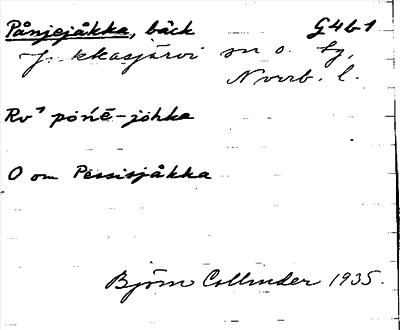 Pånjejåkka, bäck G4b1
J kkasjärvi sn o. tg,
Norrb. l.
Rv⁷ pońe͞-jòhka
O om Pessisjåkka
Björn Collinder 1935.